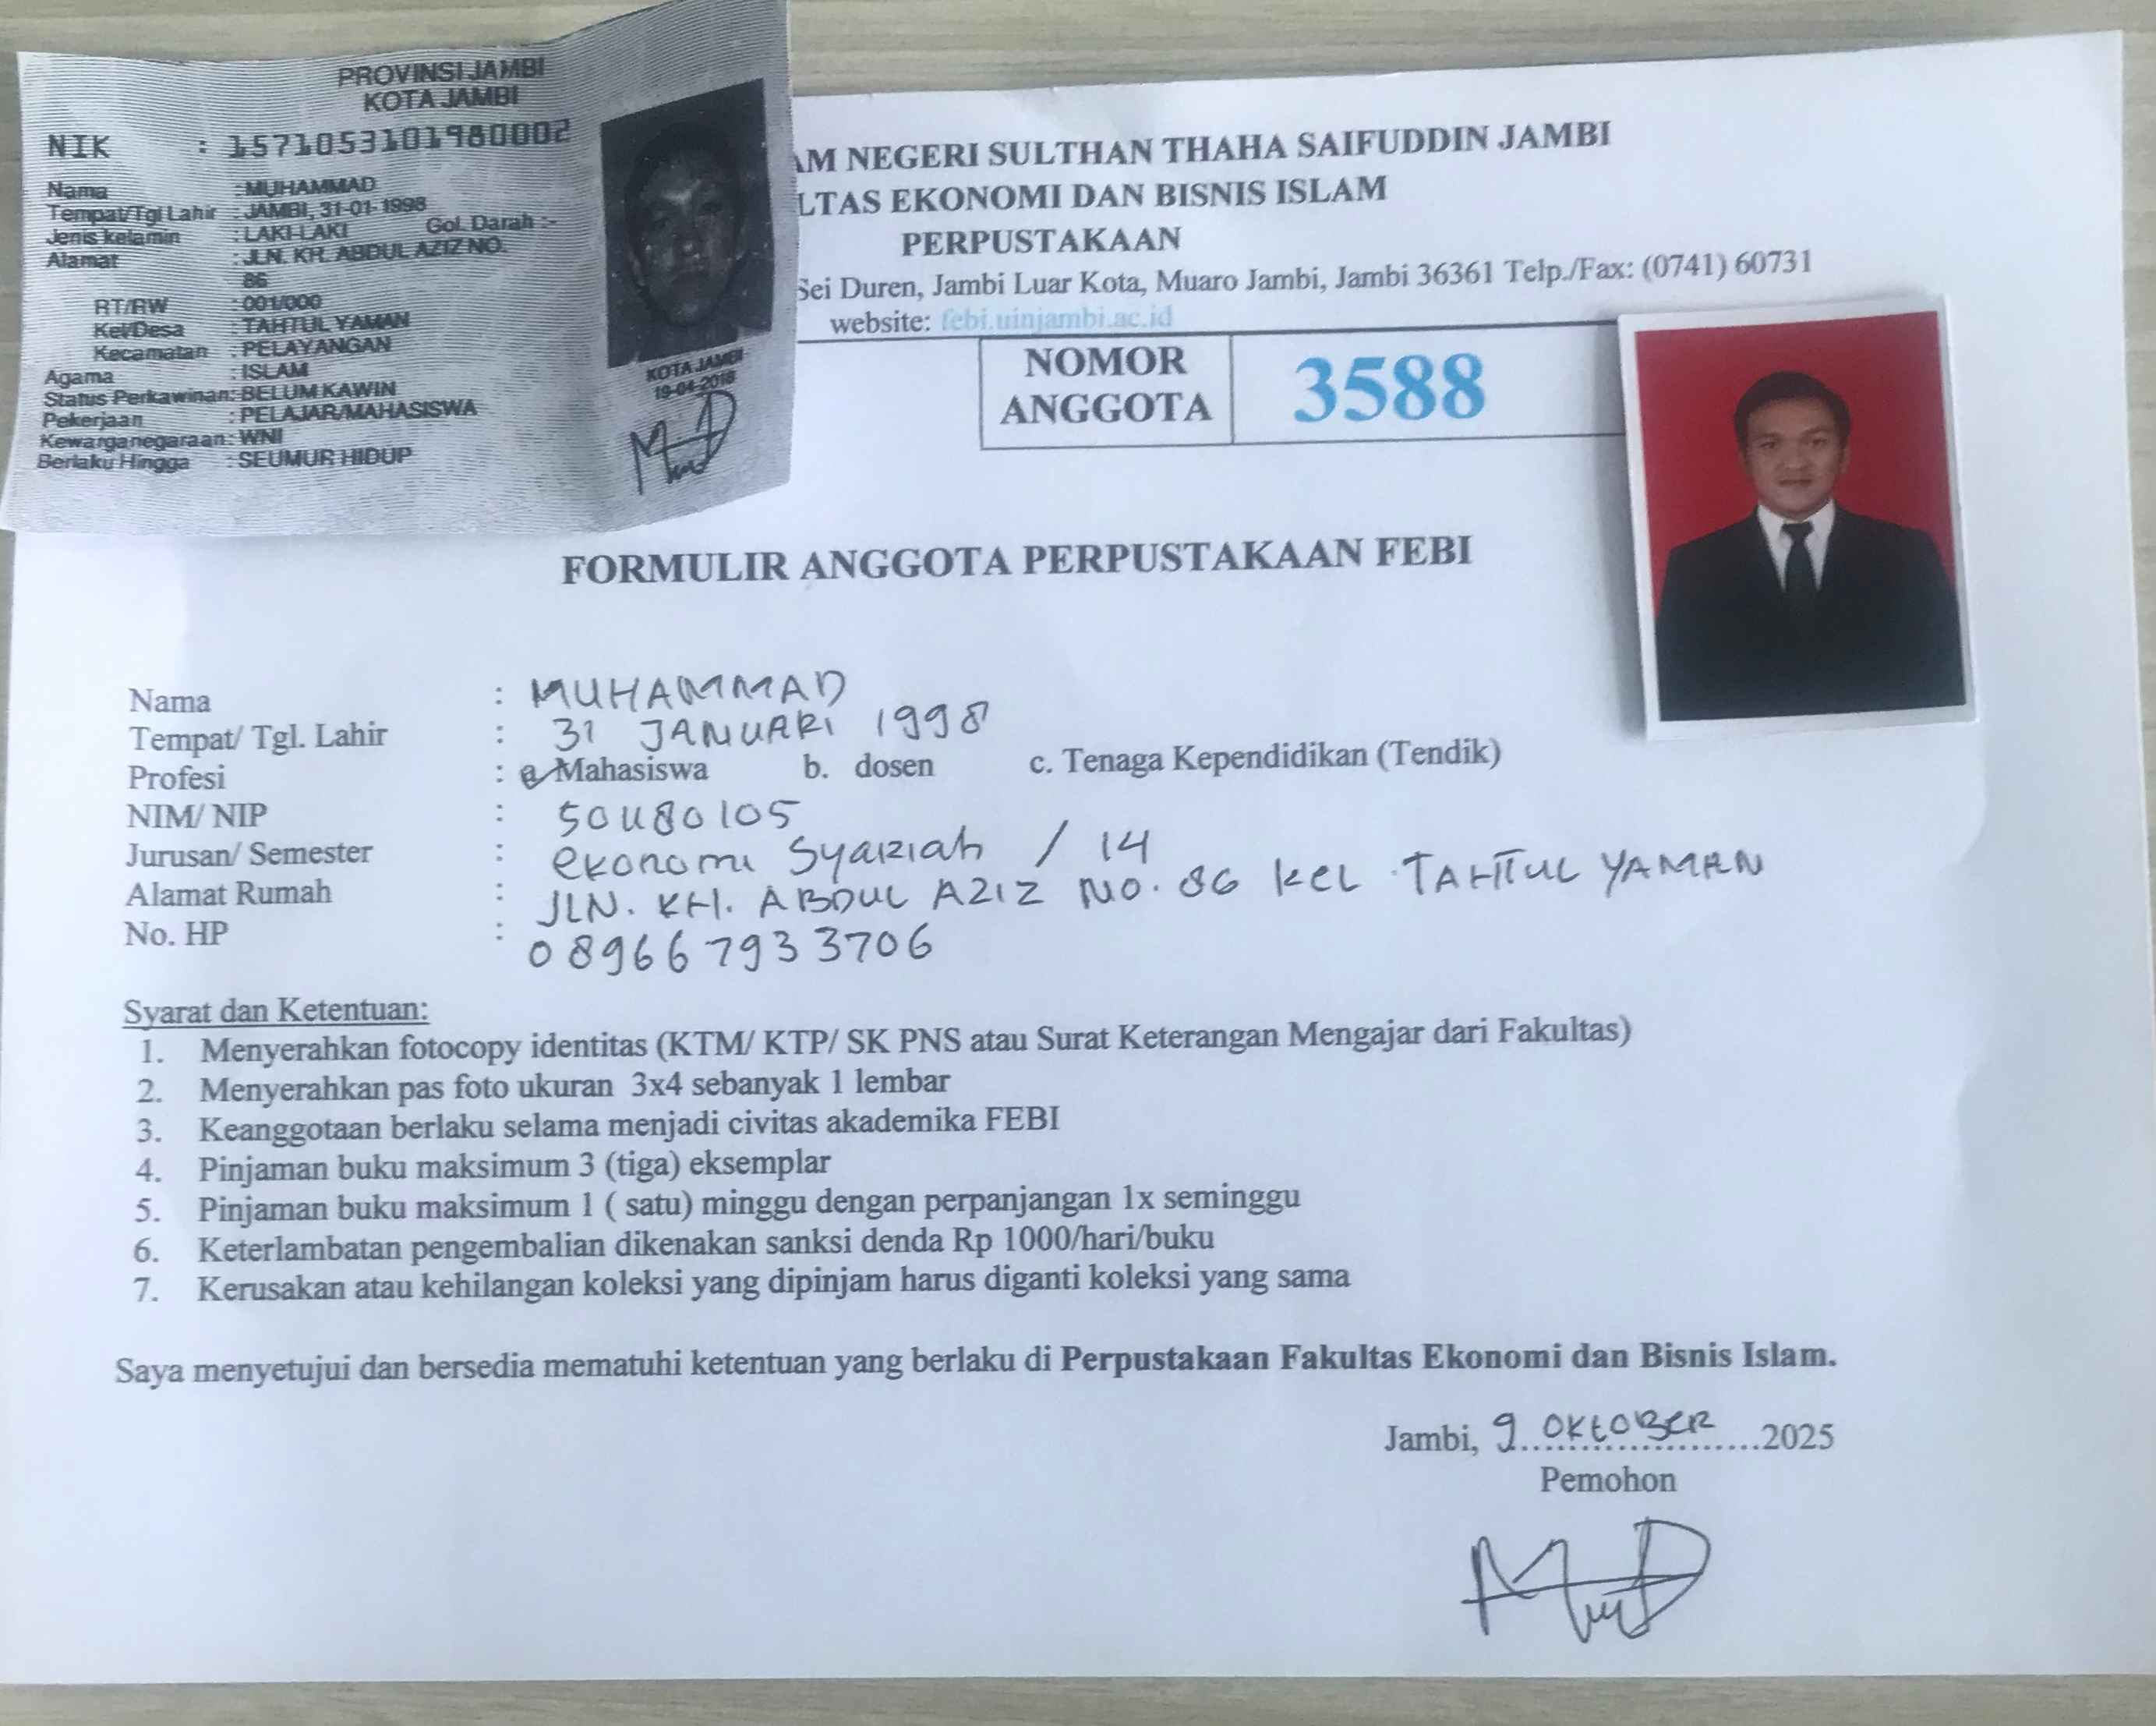 PROVINSI JAMBI
KOTA JAMBI
NIK : 1571053101980002
Nama : MUHAMMAD
Tempat/Tgl Lahir : JAMBI, 31-01-1998
Jenis kelamin : LAKI-LAKI Gol. Darah : -
Alamat : JLN. KH. ABDUL AZIZ NO.
86
RT/RW : 001/000
Kel/Desa : TAHTUL YAMAN
Kecamatan : PELAYANGAN
Agama : ISLAM
Status Perkawinan: BELUM KAWIN
Pekerjaan : PELAJAR/MAHASISWA
Kewarganegaraan: WNI
Berlaku Hingga : SEUMUR HIDUP
KOTA JAMBI
19-04-2016
AM NEGERI SULTHAN THAHA SAIFUDDIN JAMBI
LTAS EKONOMI DAN BISNIS ISLAM
PERPUSTAKAAN
Sei Duren, Jambi Luar Kota, Muaro Jambi, Jambi 36361 Telp./Fax: (0741) 60731
website: febi.uinjambi.ac.id
NOMOR
ANGGOTA
3588
FORMULIR ANGGOTA PERPUSTAKAAN FEBI
Nama : MUHAMMAD
Tempat/ Tgl. Lahir : 31 JANUARI 1998
Profesi : a. Mahasiswa b. dosen c. Tenaga Kependidikan (Tendik)
NIM/ NIP :
Jurusan/ Semester : ekonomi Syariah / 14
Alamat Rumah : JLN. KH. ABDUL AZIZ NO. 86 kel TAHTUL YAMAN
No. HP : 089667933706
Syarat dan Ketentuan:
1. Menyerahkan fotocopy identitas (KTM/ KTP/ SK PNS atau Surat Keterangan Mengajar dari Fakultas)
2. Menyerahkan pas foto ukuran 3x4 sebanyak 1 lembar
3. Keanggotaan berlaku selama menjadi civitas akademika FEBI
4. Pinjaman buku maksimum 3 (tiga) eksemplar
5. Pinjaman buku maksimum 1 ( satu) minggu dengan perpanjangan 1x seminggu
6. Keterlambatan pengembalian dikenakan sanksi denda Rp 1000/hari/buku
7. Kerusakan atau kehilangan koleksi yang dipinjam harus diganti koleksi yang sama
Saya menyetujui dan bersedia mematuhi ketentuan yang berlaku di Perpustakaan Fakultas Ekonomi dan Bisnis Islam.
Jambi, 9 OKTOBER 2025
Pemohon